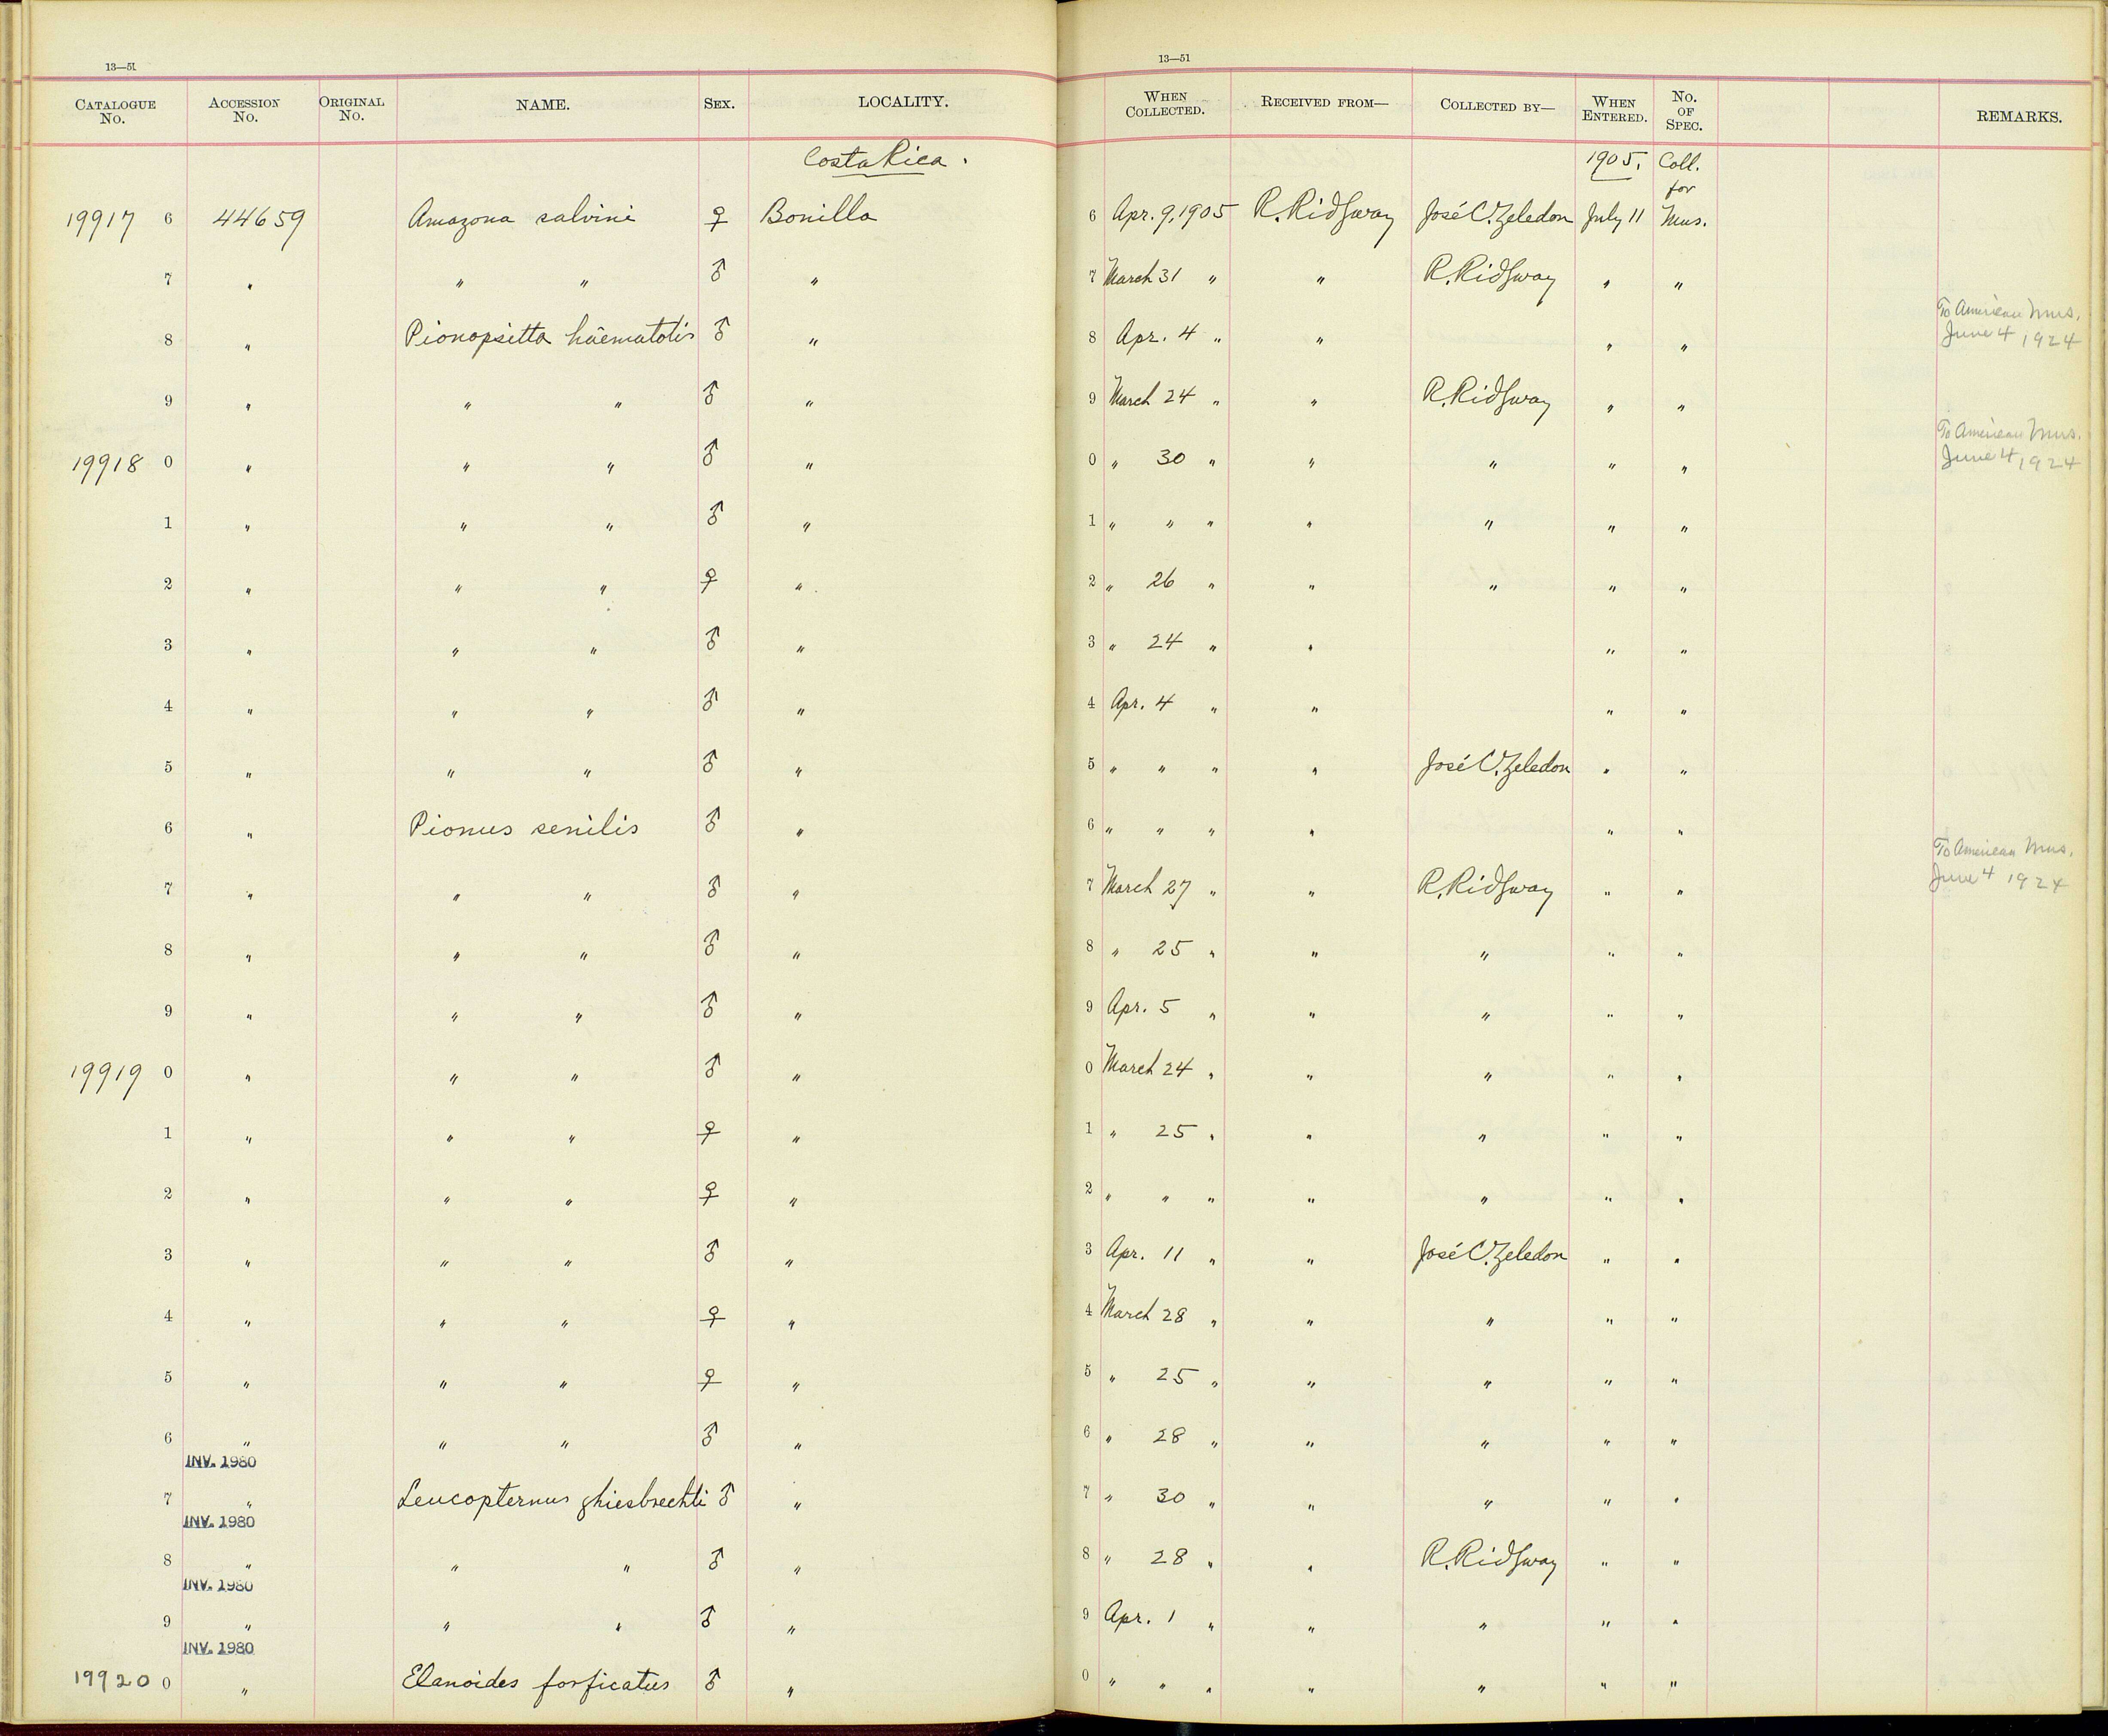 13—51
13—51
CATALOGUE No. ACCESSION No. ORIGINAL No. NAME. SEX. LOCALITY. WHEN COLLECTED. RECEIVED FROM— COLLECTED BY— WHEN ENTERED. No. OF SPEC. REMARKS.
Costa Rica. 1905. Coll. for
19917 6 44659 Amazona salvini ♀ Bonilla 6 Apr. 9, 1905 R. Ridgway José C. Zeledon July 11 Mus.
7 " " " ♂ " 7 March 31 " " R. Ridgway " "
8 " Pionopsitta häematotis ♂ " 8 Apr. 4 " " " " To American Mus. June 4, 1924
9 " " " ♂ " 9 March 24 " " R. Ridgway " "
19918 0 " " " ♂ " 0 " 30 " " " " " To American Mus. June 4, 1924
1 " " " ♂ " 1 " " " " " " "
2 " " " ♀ " 2 " 26 " " " " "
3 " " " ♂ " 3 " 24 " " " "
4 " " " ♂ " 4 Apr. 4 " " " "
5 " " " ♂ " 5 " " " " José C. Zeledon " "
6 " Pionus senilis ♂ " 6 " " " " " "
7 " " " ♂ " 7 March 27 " " R. Ridgway " " To American Mus. June 4 1924
8 " " " ♂ " 8 " 25 " " " " "
9 " " " ♂ " 9 Apr. 5 " " " " "
19919 0 " " " ♂ " 0 March 24 " " " " "
1 " " " ♀ " 1 " 25 " " " " "
2 " " " ♀ " 2 " " " " " " "
3 " " " ♂ " 3 Apr. 11 " " José C. Zeledon " "
4 " " " ♀ " 4 March 28 " " " " "
5 " " " ♀ " 5 " 25 " " " " "
6 " " " ♂ " 6 " 28 " " " " "
INV. 1980
7 " Leucopternus ghiesbrechti ♂ " 7 " 30 " " " " "
INV. 1980
8 " " " ♂ " 8 " 28 " " R. Ridgway " "
INV. 1980
9 " " " ♂ " 9 Apr. 1 " " " " "
INV. 1980
19920 0 " Elanoides forficatus ♂ " 0 " " " " " " "